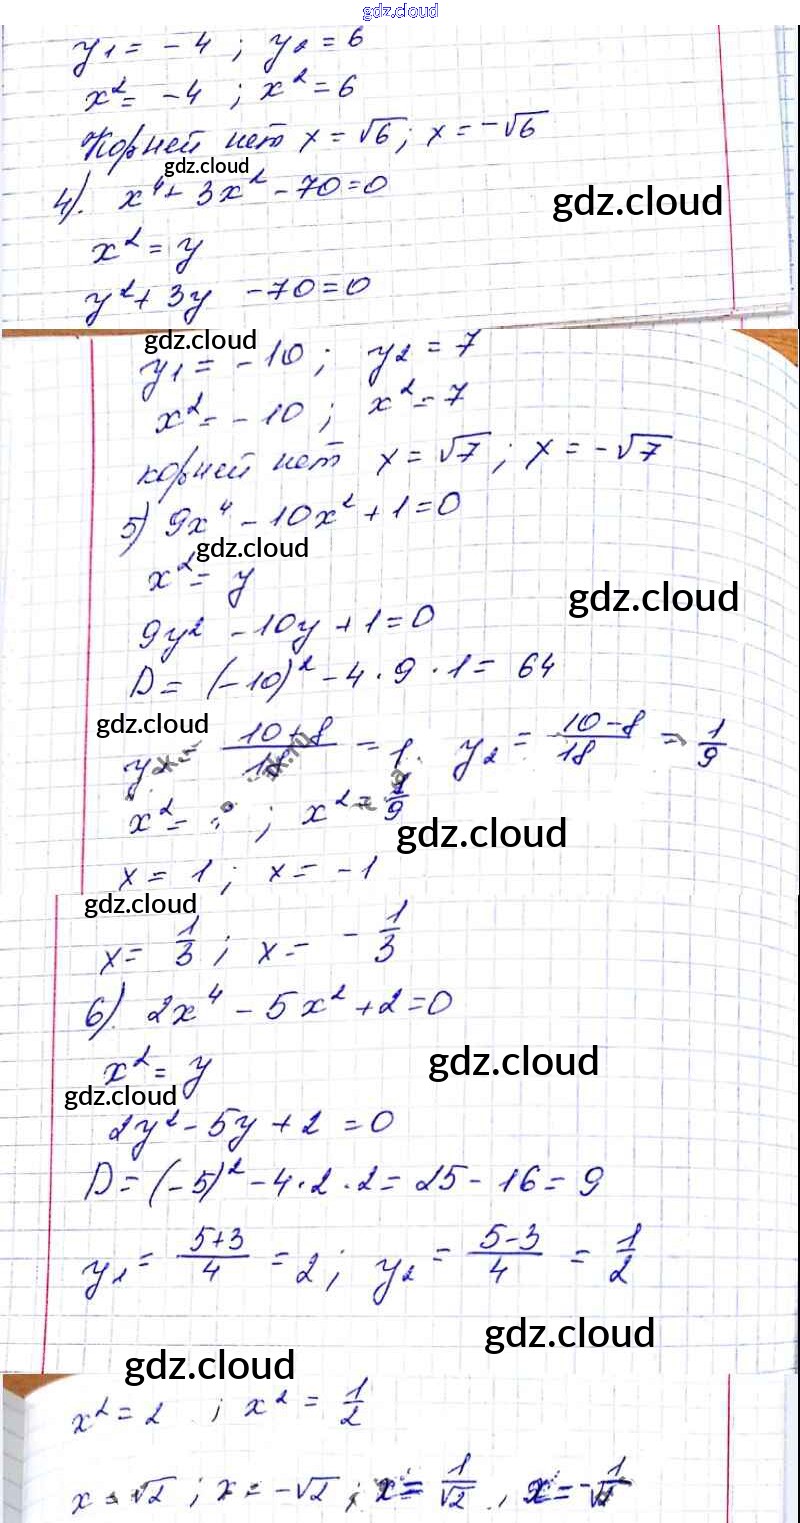 gdz.cloud
y₁ = -4 ; y₂ = 6
x² = -4 ; x² = 6
Корней нет x = √6 ; x = -√6
gdz.cloud
4). x⁴ + 3x² - 70 = 0
gdz.cloud
x² = y
y² + 3y - 70 = 0
gdz.cloud
y₁ = -10 ; y₂ = 7
x² = -10 ; x² = 7
корней нет x = √7 ; x = -√7
5) 9x⁴ - 10x² + 1 = 0
gdz.cloud
x² = y
gdz.cloud
9y² - 10y + 1 = 0
D = (-10)² - 4 · 9 · 1 = 64
gdz.cloud
y = (10+8)/18 = 1 y₂ = (10-8)/18 = 1/9
x² = ; x² = 1/9
gdz.cloud
x = 1 ; x = -1
gdz.cloud
x = 1/3 ; x = -1/3
6). 2x⁴ - 5x² + 2 = 0
gdz.cloud
x² = y
gdz.cloud
2y² - 5y + 2 = 0
D = (-5)² - 4 · 2 · 2 = 25 - 16 = 9
y₁ = (5+3)/4 = 2 ; y₂ = (5-3)/4 = 1/2
gdz.cloud
gdz.cloud
x² = 2 ; x² = 1/2
x = √2 ; x = -√2 ; x = 1/√2 , x = -1/√2